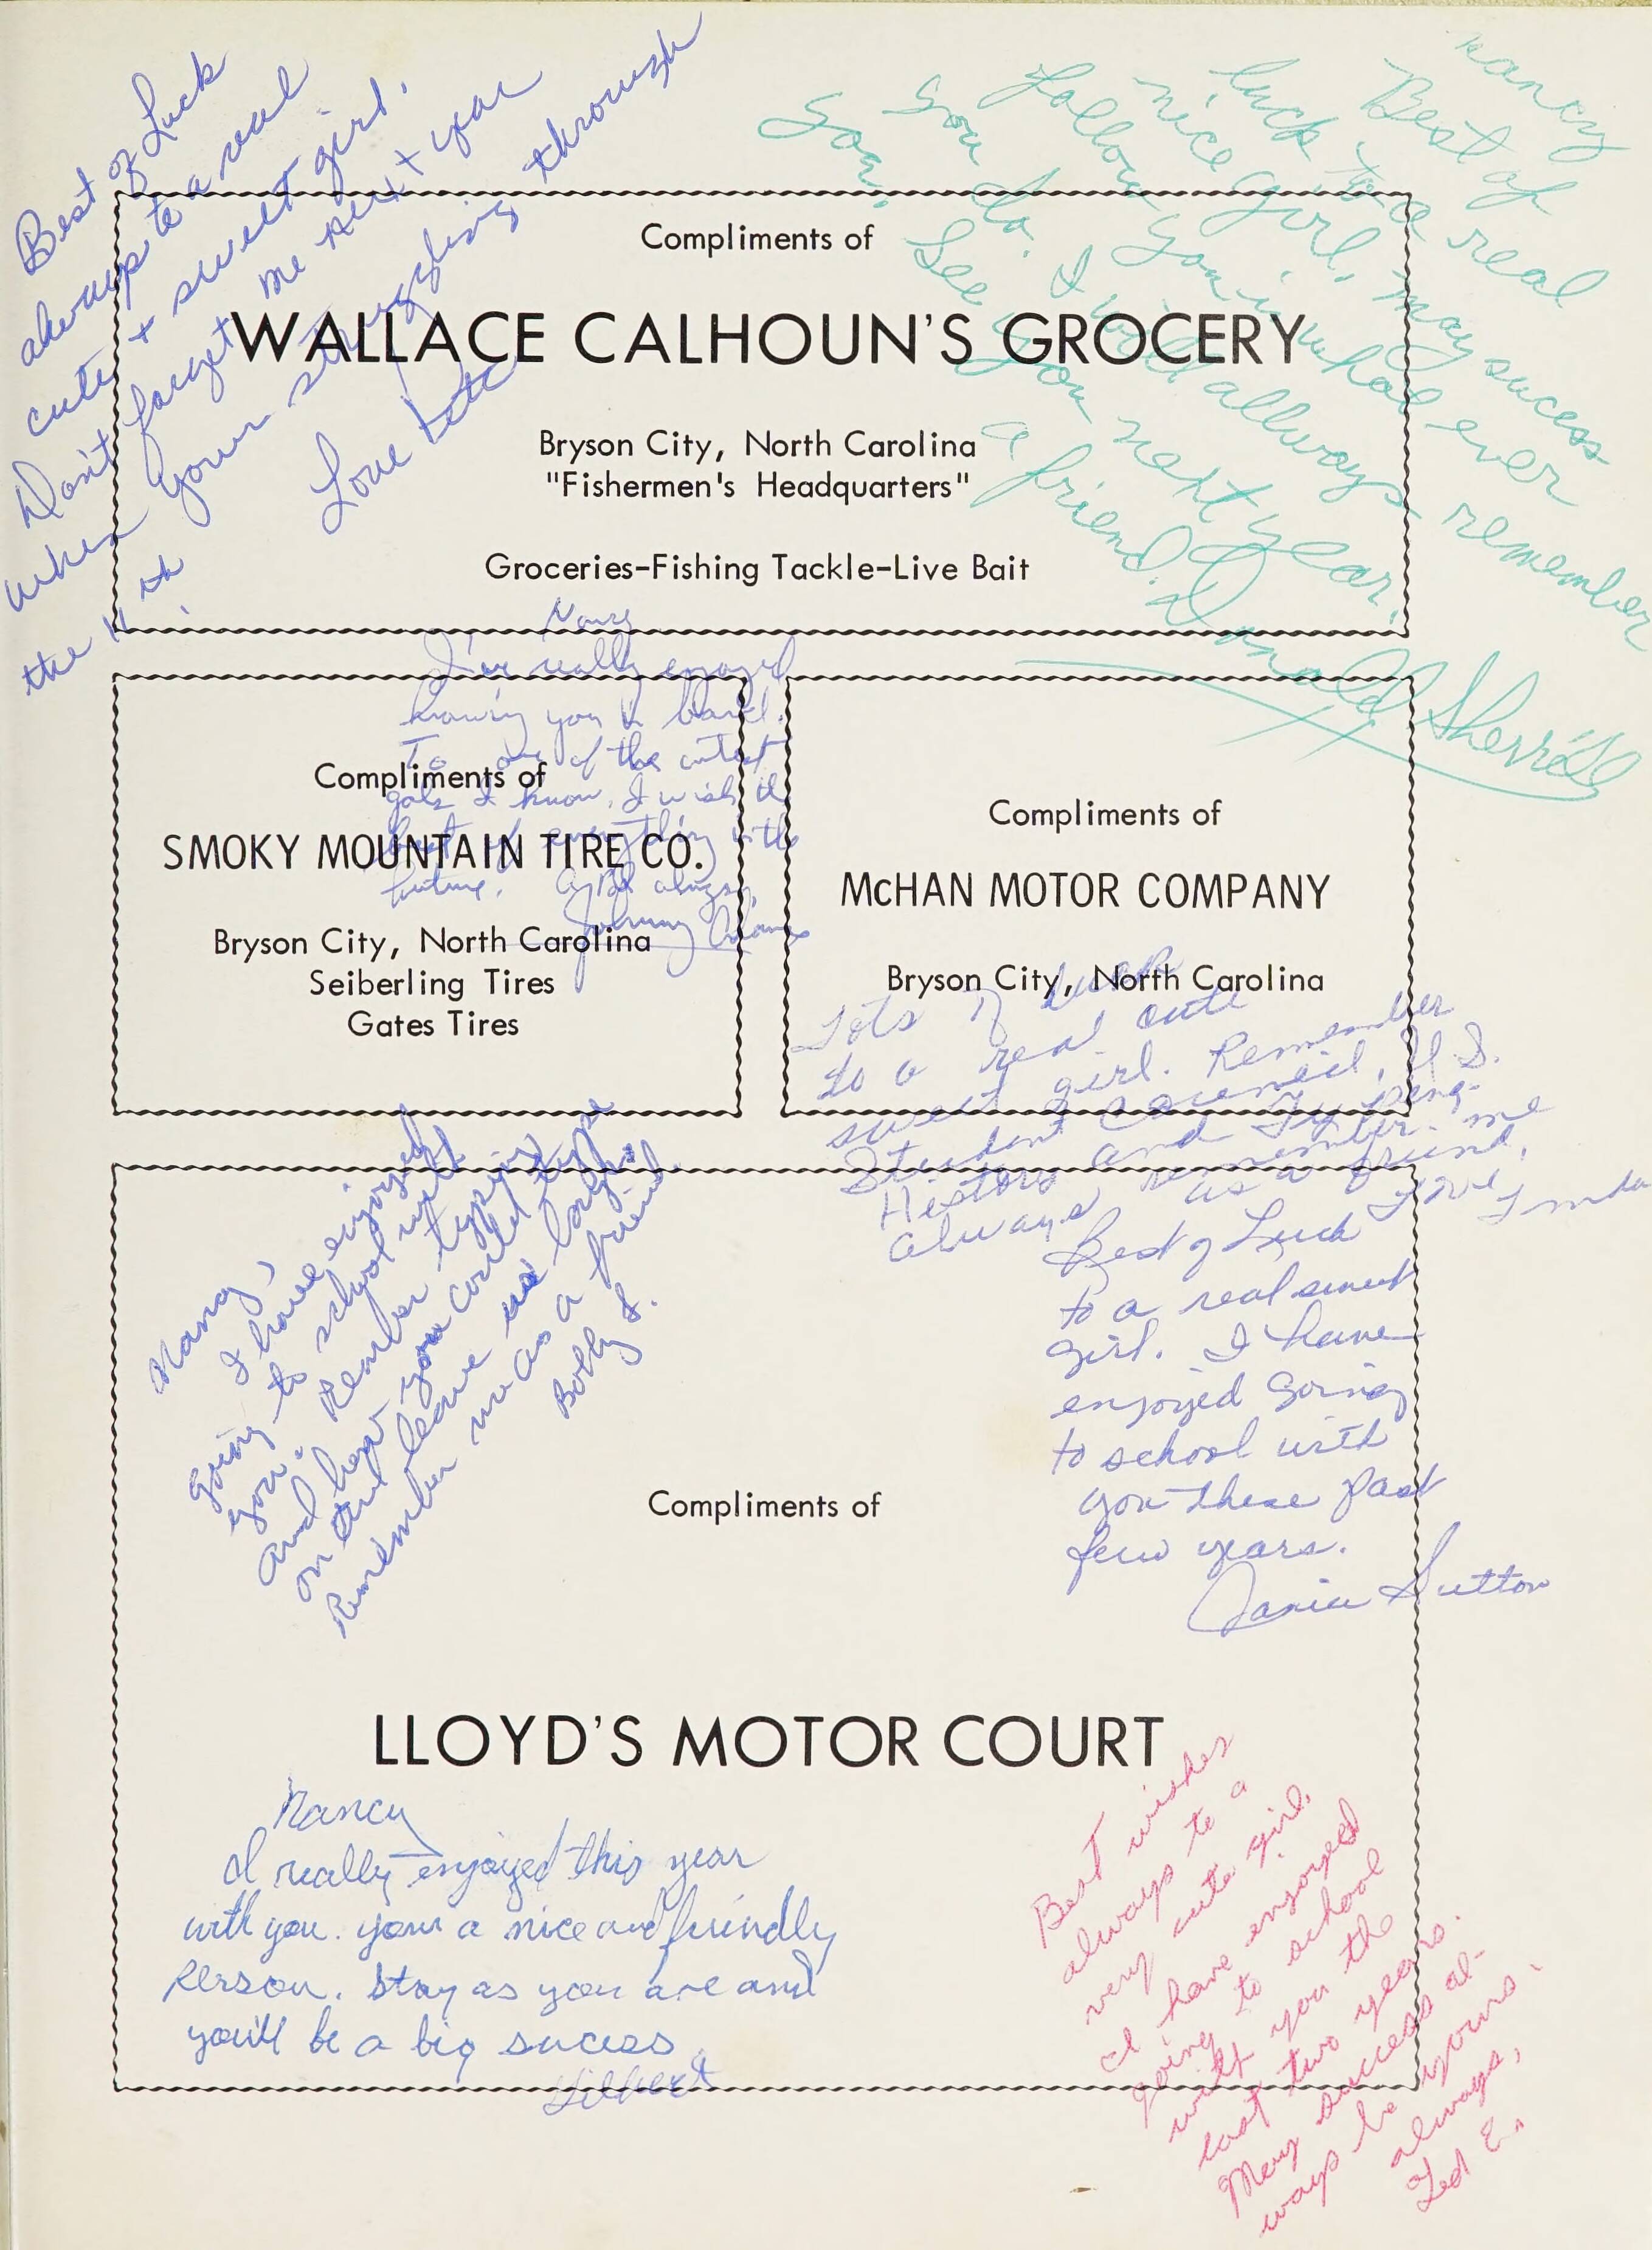 Best of Luck
always to a real
cute + sweet girl.
Don't forget me next year
when your struggling through
the 11th.
Love
Nancy
Best of
luck to a real
nice girl, may sucess
follow you in what ever
you do. I will allways remember
you. See you next year.
a friend,
Donald Sherrill
Compliments of
WALLACE CALHOUN'S GROCERY
Bryson City, North Carolina
"Fishermen's Headquarters"
Groceries-Fishing Tackle-Live Bait
Nancy
I've really enjoyed
knowing you in band.
To one of the cutest
gals I know, I wish the
best of everything in the
future. always,
Johnny
Compliments of
SMOKY MOUNTAIN TIRE CO.
Bryson City, North Carolina
Seiberling Tires
Gates Tires
Compliments of
McHAN MOTOR COMPANY
Bryson City, North Carolina
Lots of Luck
to a real cute
sweet girl. Remember
Student Council, U.S.
History and Typeing.
always remember me
as a friend,
Love Linda
Nancy,
I have enjoyed
going to school with
you. Rember typing
and how you could type
on and leave us looking.
Remember me as a friend.
Bobby S.
Best of Luck
to a real sweet
girl. I have
enjoyed going
to school with
you these past
few years.
Janice Sutton
Compliments of
LLOYD'S MOTOR COURT
Nancy
I really enjoyed this year
with you. your a nice and friendly
Person. Stay as you are and
you'll be a big sucess
Gilbert
Best wishes
always to a
very cute girl.
I have enjoyed
going to school
with you the
last two years.
May success al-
ways be yours.
always,
Ted E.